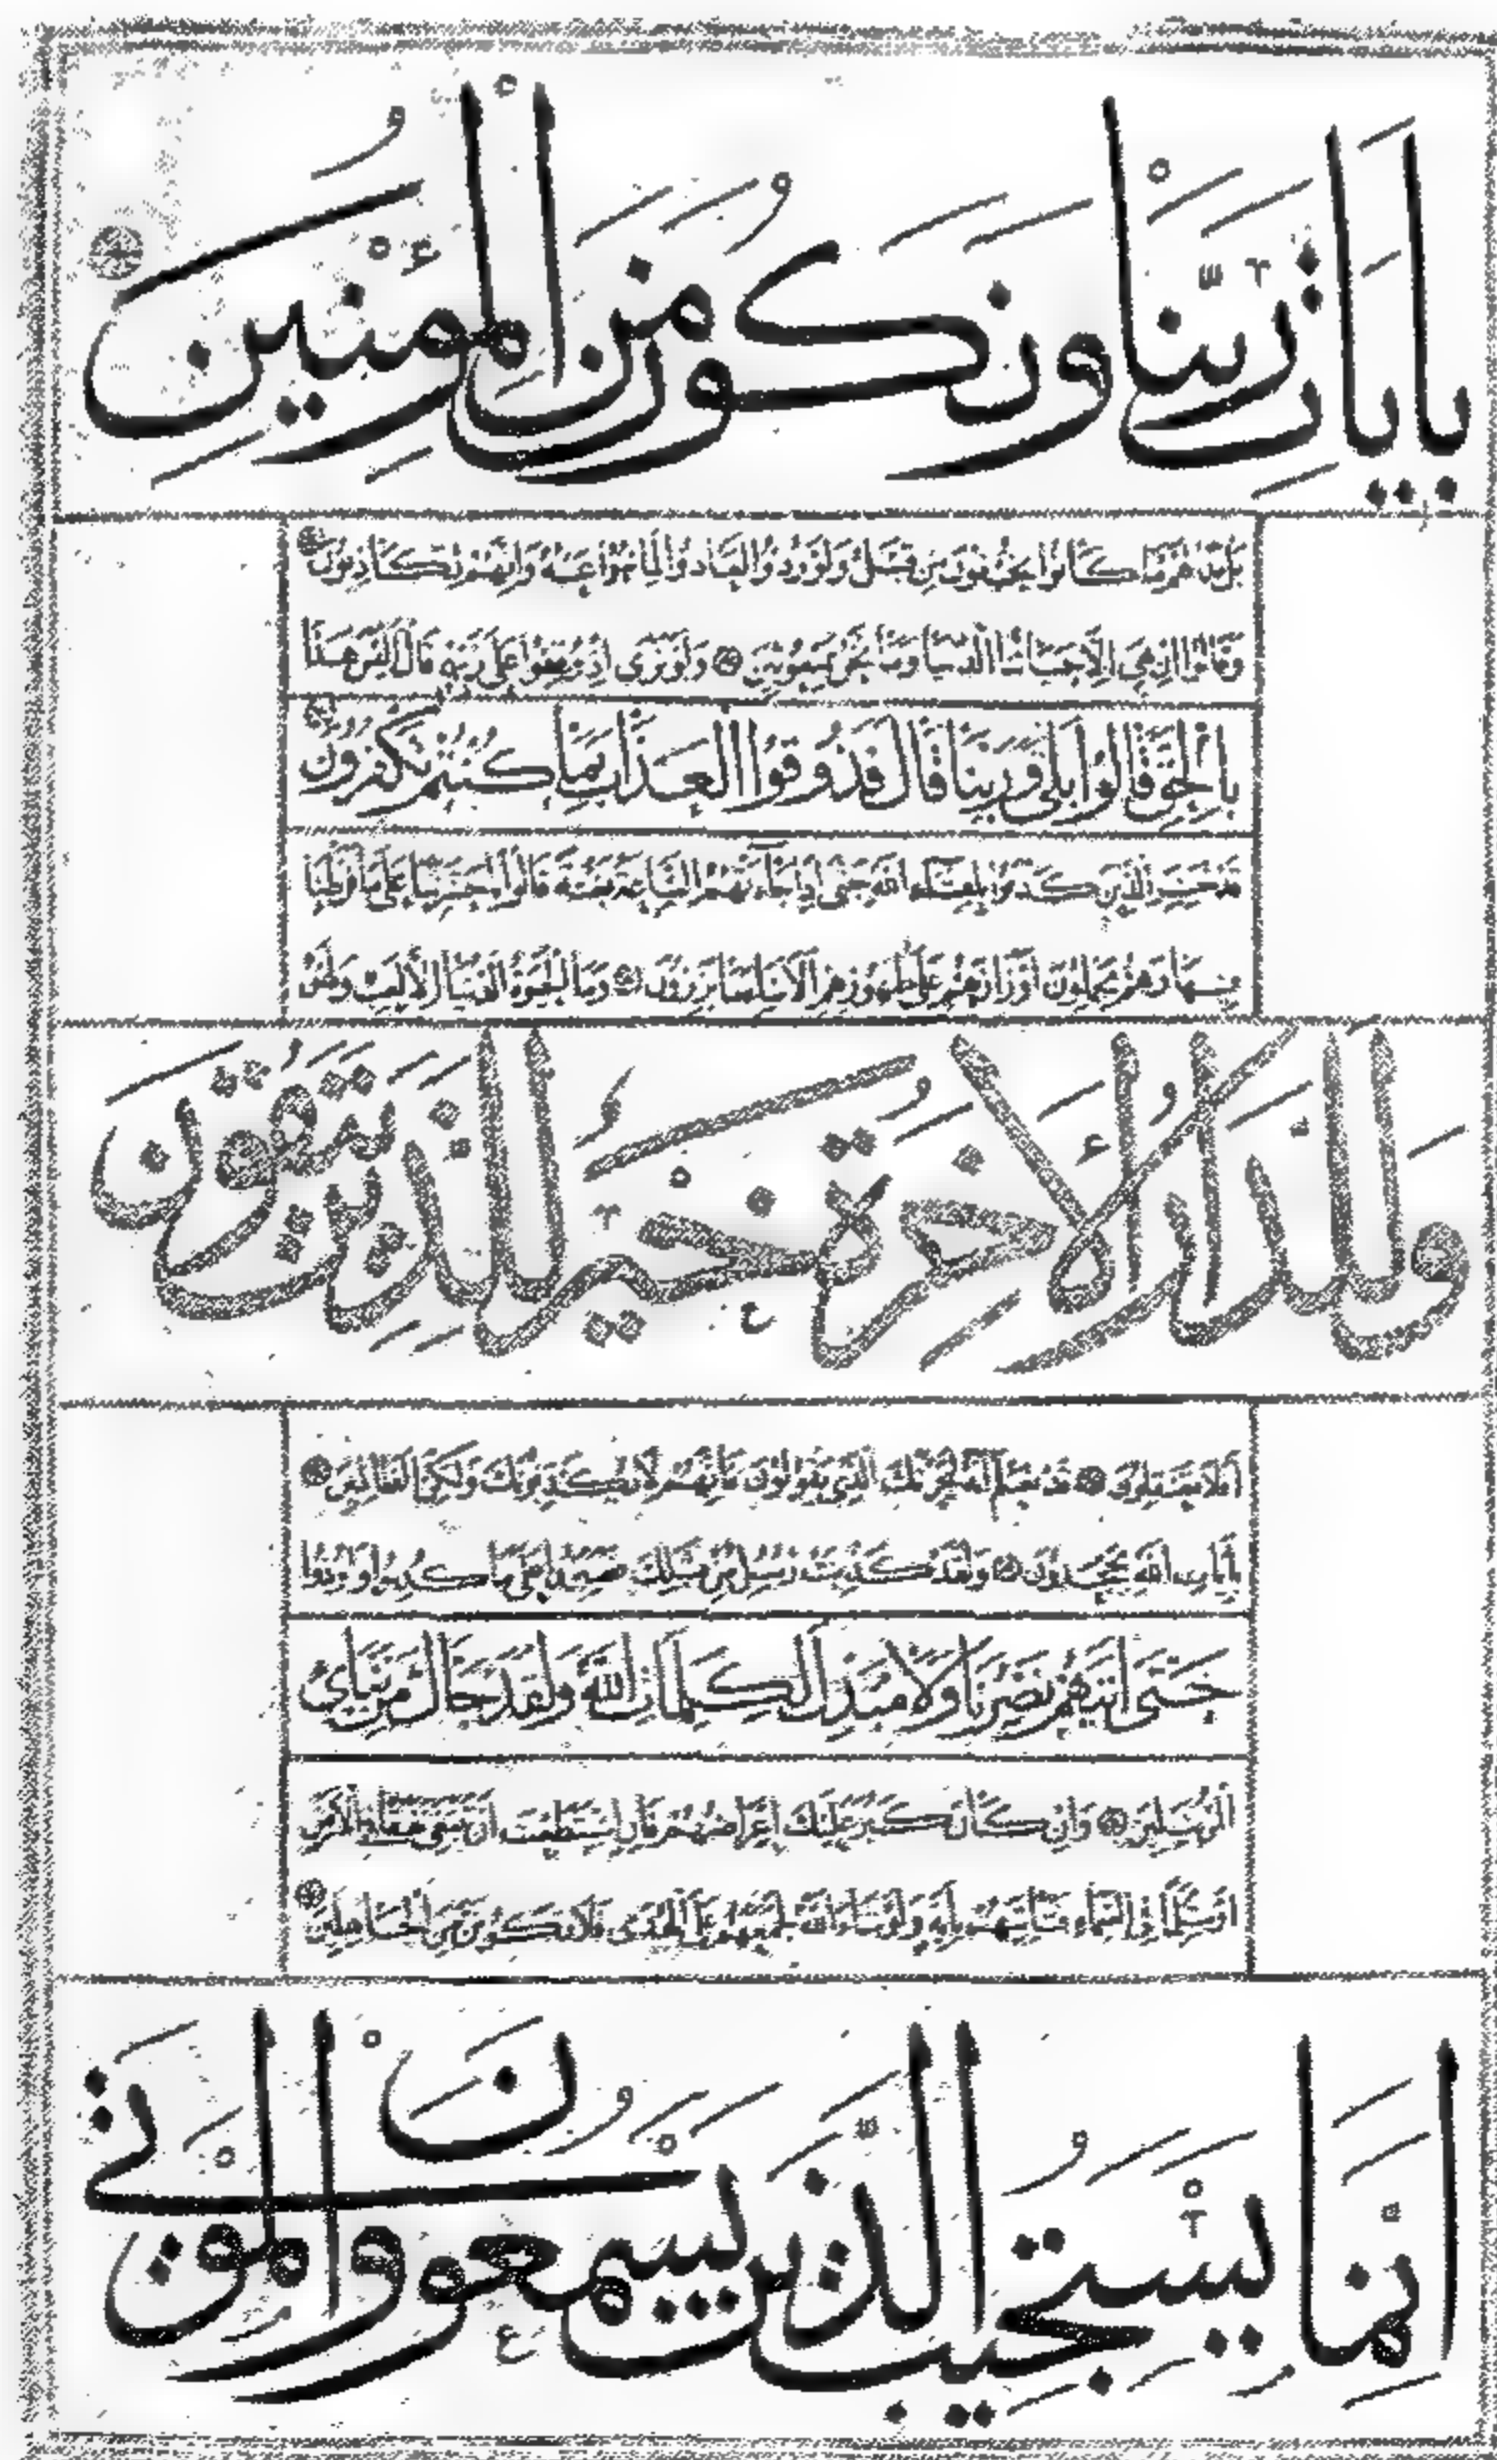 بِآيَاتِ رَبِّنَا وَنَكُونَ مِنَ الْمُؤْمِنِينَ
بَلْ بَدَا لَهُمْ مَا كَانُوا يُخْفُونَ مِنْ قَبْلُ وَلَوْ رُدُّوا لَعَادُوا لِمَا نُهُوا عَنْهُ وَإِنَّهُمْ لَكَاذِبُونَ
وَقَالُوا إِنْ هِيَ إِلَّا حَيَاتُنَا الدُّنْيَا وَمَا نَحْنُ بِمَبْعُوثِينَ وَلَوْ تَرَى إِذْ وُقِفُوا عَلَى رَبِّهِمْ قَالَ أَلَيْسَ هَذَا
بِالْحَقِّ قَالُوا بَلَى وَرَبِّنَا قَالَ فَذُوقُوا الْعَذَابَ بِمَا كُنْتُمْ تَكْفُرُونَ
قَدْ خَسِرَ الَّذِينَ كَذَّبُوا بِلِقَاءِ اللَّهِ حَتَّى إِذَا جَاءَتْهُمُ السَّاعَةُ بَغْتَةً قَالُوا يَا حَسْرَتَنَا عَلَى مَا فَرَّطْنَا
فِيهَا وَهُمْ يَحْمِلُونَ أَوْزَارَهُمْ عَلَى ظُهُورِهِمْ أَلَا سَاءَ مَا يَزِرُونَ وَمَا الْحَيَوةُ الدُّنْيَا إِلَّا لَعِبٌ وَلَهْوٌ
وَلَلدَّارُ الْآخِرَةُ خَيْرٌ لِلَّذِينَ يَتَّقُونَ
أَفَلَا تَعْقِلُونَ قَدْ نَعْلَمُ إِنَّهُ لَيَحْزُنُكَ الَّذِي يَقُولُونَ فَإِنَّهُمْ لَا يُكَذِّبُونَكَ وَلَكِنَّ الظَّالِمِينَ
بِآيَاتِ اللَّهِ يَجْحَدُونَ وَلَقَدْ كُذِّبَتْ رُسُلٌ مِنْ قَبْلِكَ فَصَبَرُوا عَلَى مَا كُذِّبُوا وَأُوذُوا
حَتَّى أَتَاهُمْ نَصْرُنَا وَلَا مُبَدِّلَ لِكَلِمَاتِ اللَّهِ وَلَقَدْ جَاءَكَ مِنْ نَبَإِ
الْمُرْسَلِينَ وَإِنْ كَانَ كَبُرَ عَلَيْكَ إِعْرَاضُهُمْ فَإِنِ اسْتَطَعْتَ أَنْ تَبْتَغِيَ نَفَقًا فِي الْأَرْضِ
أَوْ سُلَّمًا فِي السَّمَاءِ فَتَأْتِيَهُمْ بِآيَةٍ وَلَوْ شَاءَ اللَّهُ لَجَمَعَهُمْ عَلَى الْهُدَى فَلَا تَكُونَنَّ مِنَ الْجَاهِلِينَ
إِنَّمَا يَسْتَجِيبُ الَّذِينَ يَسْمَعُونَ وَالْمَوْتَى